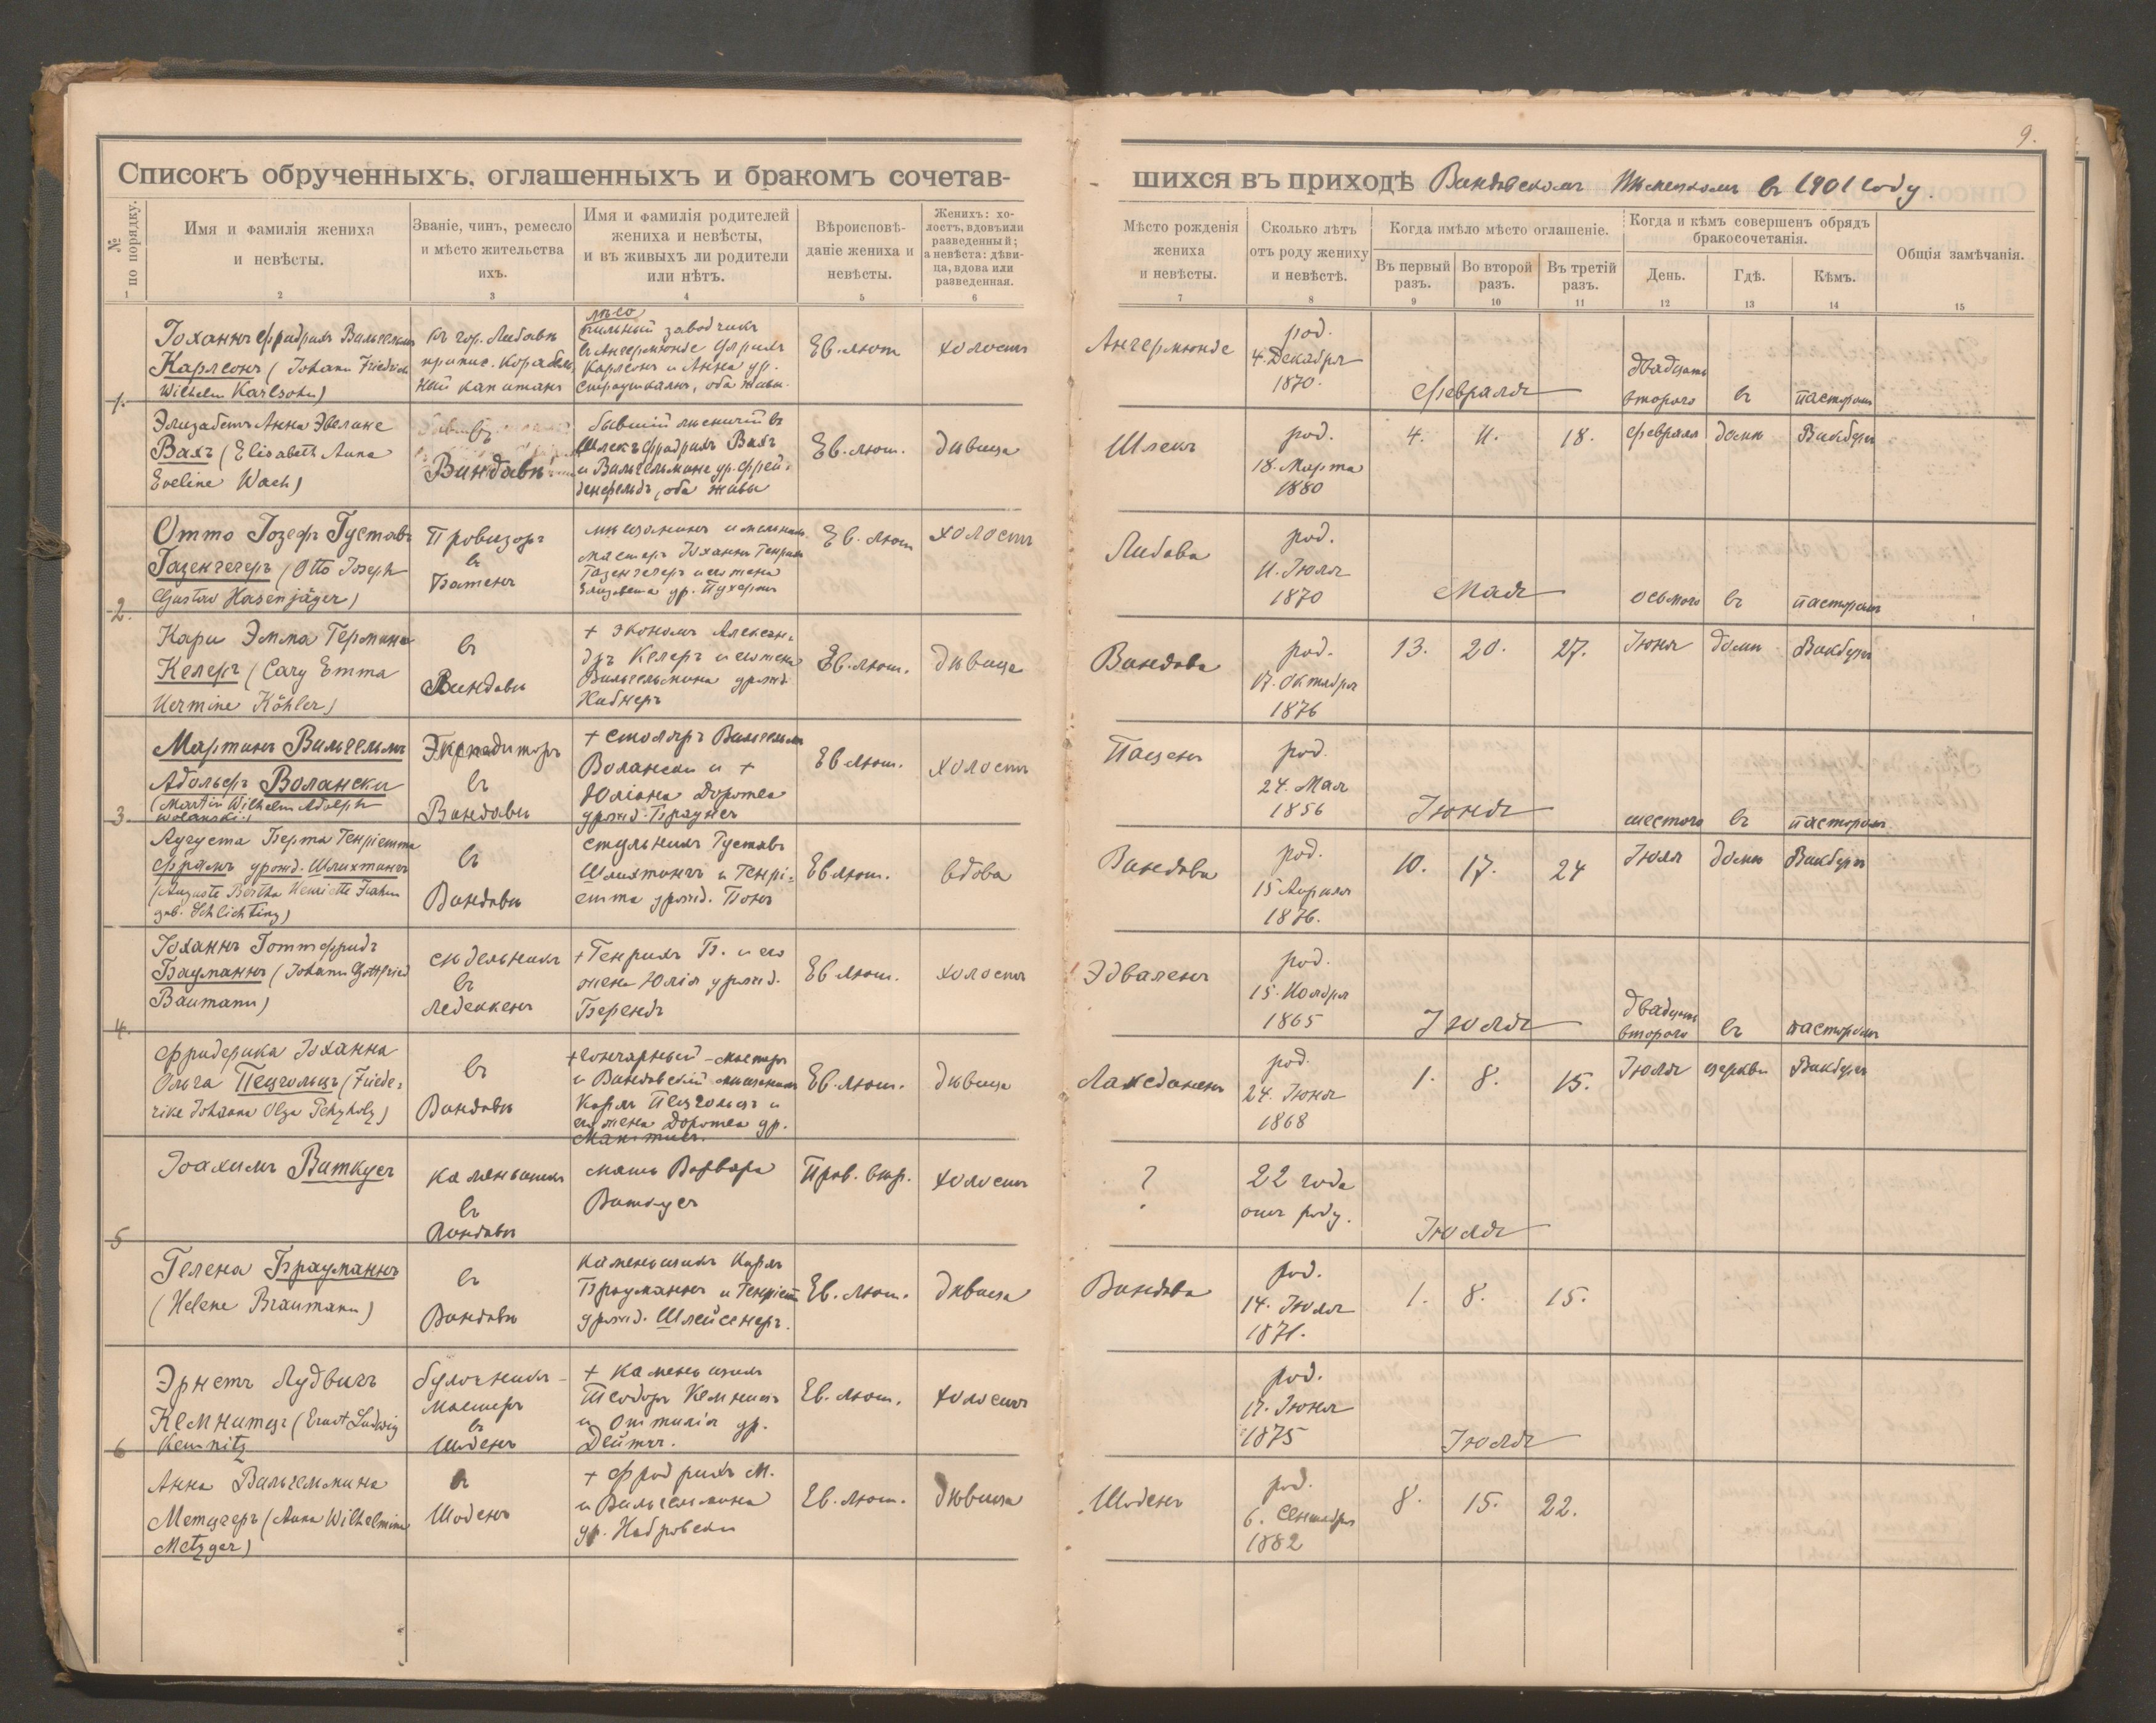 9.
Списокъ обрученныхъ, оглашенныхъ и бракомъ сочетав-
шихся въ приходѣ Виндавскомъ Нѣмецкомъ въ 1901 году.
№ по порядку.
Имя и фамилія жениха
и невѣсты.
Званіе, чинъ, ремесло
и мѣсто жительства
ихъ.
Имя и фамилія родителей
жениха и невѣсты,
и въ живыхъ ли родители
или нѣтъ.
Вѣроисповѣ-
даніе жениха и
невѣсты.
Женихъ: хо-
лостъ, вдовъ или
разведенный;
а невѣста: дѣви-
ца, вдова или
разведенная.
Мѣсто рожденія
жениха
и невѣсты.
Сколько лѣтъ
отъ роду жениху
и невѣстѣ.
Когда имѣло мѣсто оглашеніе.
Въ первый
разъ.
Во второй
разъ.
Въ третій
разъ.
Когда и кѣмъ совершенъ обрядъ
бракосочетанія.
День.
Гдѣ.
Кѣмъ.
Общія замѣчанія.
1 2 3 4 5 6 7 8 9 10 11 12 13 14 15
1.
Іоханнъ Фридрихъ Вильгельмъ
Карлсонъ (Johann Friedrich
Wilhelm Karlsohn)
къ гор. Либавѣ
припис. корабель
ный капитанъ
лѣсо
пильный заводчикъ
въ Ангермюнде Ульрихъ
Карлсонъ и Анна ур.
Страушкалнъ, оба живы.
Ев. лют
холостъ
Ангермюнде
род.
4. Декабря
1870.
Февраля
двадцать
второго
въ
пасторомъ
Элизабетъ Анна Эвелине
Вахъ (Elisabeth Anna
Eveline Wach)
въ
Виндавѣ
бывшій лѣсничій въ
Шлекъ Фридрихъ Вахъ
и Вильгельмине ур. Фрей-
денфельдъ, оба живы
Ев. лют.
дѣвица
Шлекъ
род.
18. Марта
1880
4. 11. 18.
Февраля
домѣ
Викбергъ
2.
Отто Іозефъ Густавъ
Газенгегеръ (Otto Joseph
Gustav Hasenjäger)
Провизоръ
въ
Батенъ
мѣщанинъ и мельник.
мастеръ Іоханнъ Генрихъ
Газенгегеръ и его жена
Елизавета ур.
Ев. лют
холостъ
Либава
род.
11. Іюля
1870
Мая
осьмого
въ
пасторомъ
Кари Эмма Гермина
Келеръ (Cary Emma
Hermine Köhler)
въ
Виндавѣ
+ экономъ Алексан-
дръ Келеръ и его жена
Вильгельмина урожд.
Хибнеръ
Ев. лют.
дѣвица
Виндава
род.
17. Октября
1876
13. 20. 27.
Іюня
домѣ
Викбергъ
3.
Мартинъ Вильгельмъ
Адольфъ Волански
(Martin Wilhelm Adolph
Wolanski)
Экспедиторъ
въ
Виндавѣ
+ столяръ Вильгельмъ
Волански и +
Юліана Доротеа
урожд. Браунсъ
Ев лют.
холостъ
Паценъ
род.
24. Мая
1856
Іюня
шестого
въ
пасторомъ
Аугуста Берта Генріетта
Фрамъ урожд. Шлихтингъ
(Auguste Bertha Henriette Frahm
geb. Schlichting)
въ
Виндавѣ
стульникъ Густавъ
Шлихтингъ и Генрі-
етта урожд. Понъ
Ев лют.
вдова
Виндава
род.
15 Апрѣля
1876.
10. 17. 24
Іюля
домѣ
Викбергъ
4.
Іоханнъ Готтфридъ
Бауманнъ (Johann Gottfried
Baumann)
сѣдельникъ
въ
Ледеккенъ
+ Генрихъ Б. и его
жена Юлія урожд.
Берендъ
Ев лют.
холостъ
Эдваленъ
род.
15. Ноября
1865
Іюля
двадцать
второго
въ
пасторомъ
Фридерика Іоханна
Ольга Пецгольцъ (Friede-
rike Johanna Olga Petzholz)
въ
Виндавѣ
+ гончарный мастеръ
и Виндавскій мѣщанинъ
Карлъ Пецгольцъ и
его жена Доротеа ур.
Ев. лют.
дѣвица
род.
24. Іюня
1868
1. 8. 15.
Іюля
церкви
Викбергъ
5
Іоахимъ Виткусъ
каменьщикъ
въ
Виндавѣ
мать Варвара
Виткусъ
Прав. вѣр.
холостъ
?
22 года
отъ роду.
Іюля
Гелена Брауманнъ
(Helene Braumann)
въ
Виндавѣ
каменьщикъ Карлъ
Брауманнъ и Генріетт
урожд. Шлейснеръ.
Ев. лют.
дѣвица
Виндава
род.
14. Іюля
1871.
1. 8. 15.
6
Эрнстъ Лудвигъ
Кемницъ (Ernst Ludwig
Kemnitz
булочникъ-
мастеръ
въ
Шоденъ
+ каменьщикъ
Теодоръ Кемницъ
и Оттилія ур.
Дейтчъ.
Ев. лют.
холостъ
род.
17. Іюня
1875
Іюля
Анна Вильгельмина
Метцгеръ (Anna Wilhelmine
Metzger)
въ
Шоденъ
+ Фридрихъ М.
и Вильгельмина
ур. Набровски
Ев. лют.
дѣвица
Шоденъ
род.
6. Сентября
1882
8. 15. 22.